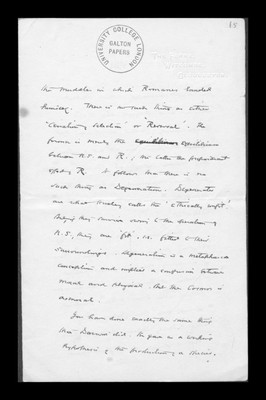 15
UNIVERSITY COLLEGE LONDON
GALTON
PAPERS
the muddle in which Romanes landed
himself. There is no such thing as either
"Cessation of Selection" or "Reversal". The
former is merely the equilibrium
between N.S. and R; the latter the
effect of R. It follows that there is no
such thing as Degeneration. Degenerate
are what Huxley calls the "ethically unfit"
they survive owing to the
N.S., they are 'fit', i.e. fitted to their
surroundings. Degeneration is a metaphorical
conception and implies a confusion between
moral and physical. But the Cosmos is
You have done exactly the same thing
that Darwin did. He gave us a working
hypothesis of the production of a species.